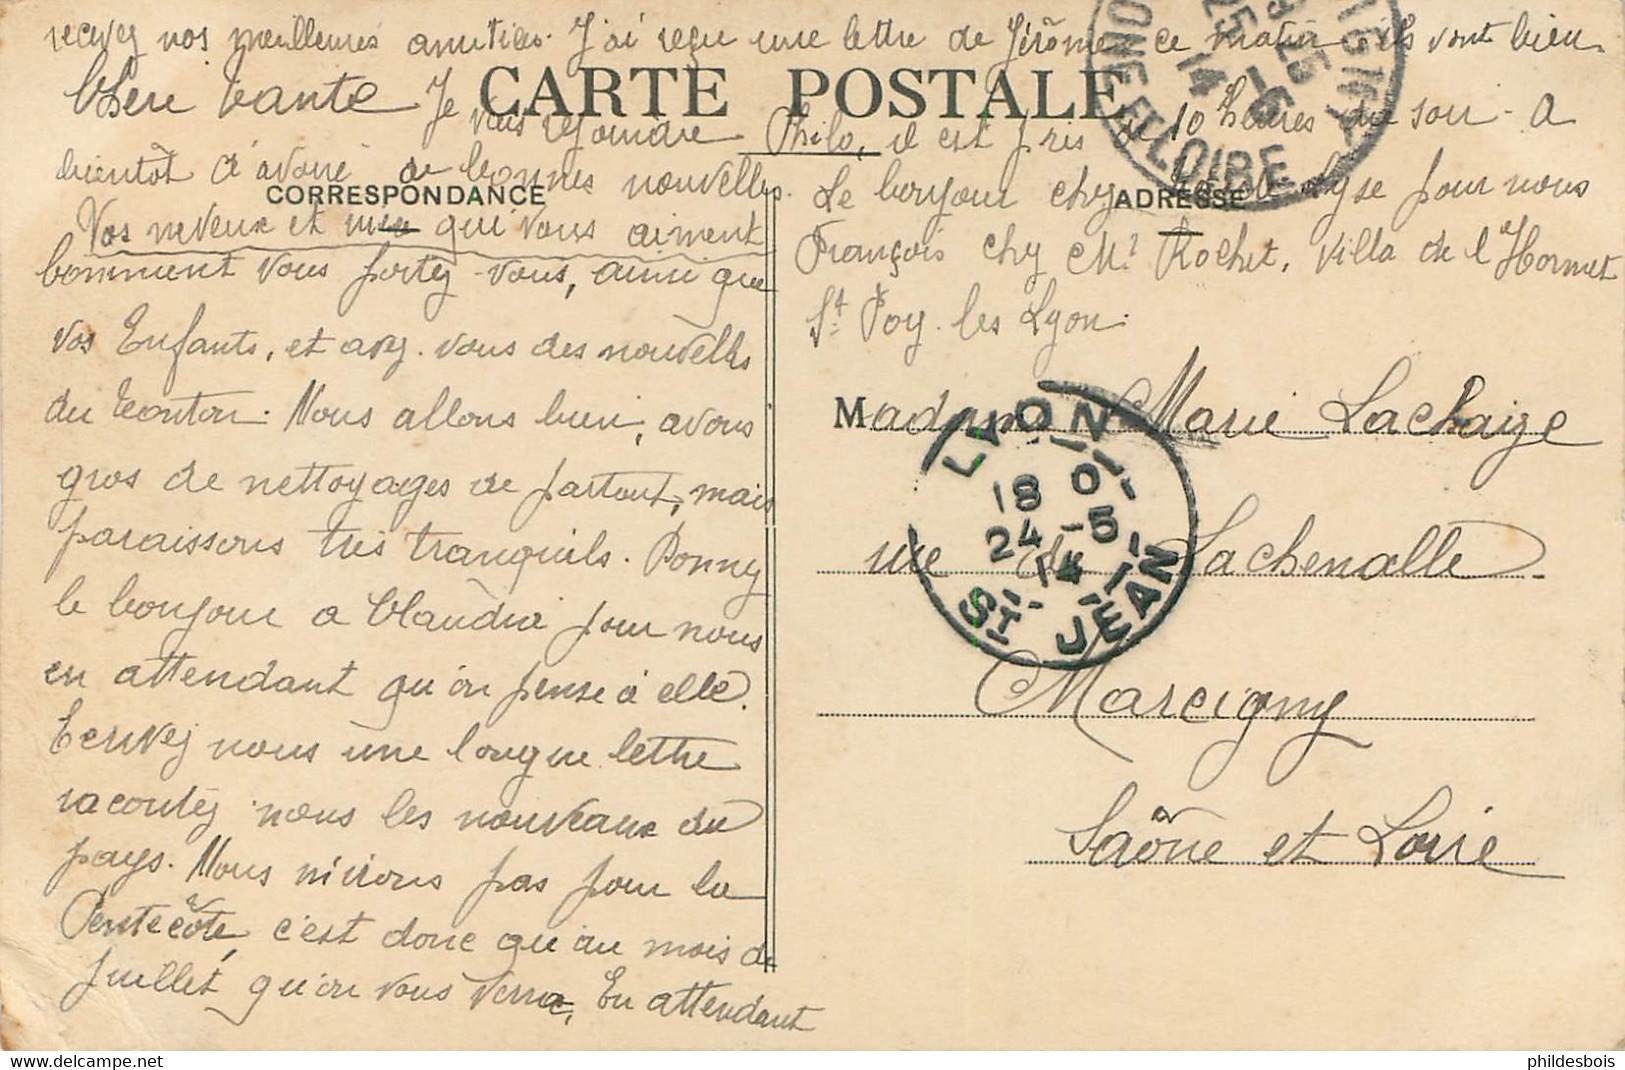 recevez nos meilleures amitiés. J'ai reçu une lettre de Jérôme ce matin ils vont bien
CARTE POSTALE
Chère tante Je vais rejoindre Philo, il est près de 10 heures du soir - A
bientôt d'avoir de bonnes nouvelles. Le bonjour chez pour nous
CORRESPONDANCE
ADRESSE
Vos neveux et qui vous aiment
François chez Mr Rochet, Villa de l'Hormet
St Foy les Lyon.
Comment vous portez-vous, ainsi que
vos Enfants, et avez-vous des nouvelles
du tonton. Nous allons bien, avons
gros de nettoyages de partout, mais
paraissons très tranquils. Donnez
le bonjour a Claudia pour nous
en attendant qu'on pense à elle.
Ecrivez nous une longue lettre
racontez nous les nouveaux du
pays. Nous n'irons pas pour la
Pentecôte, c'est donc qu'au mois de
Juillet qu'on vous verra, En attendant
Madame Marie Lachaize
rue de Lachenalle
Marcigny
Saône et Loire
LYON
18 0
24 -5
14
ST JEAN
25 -5
14
ET LOIRE
phildesbois